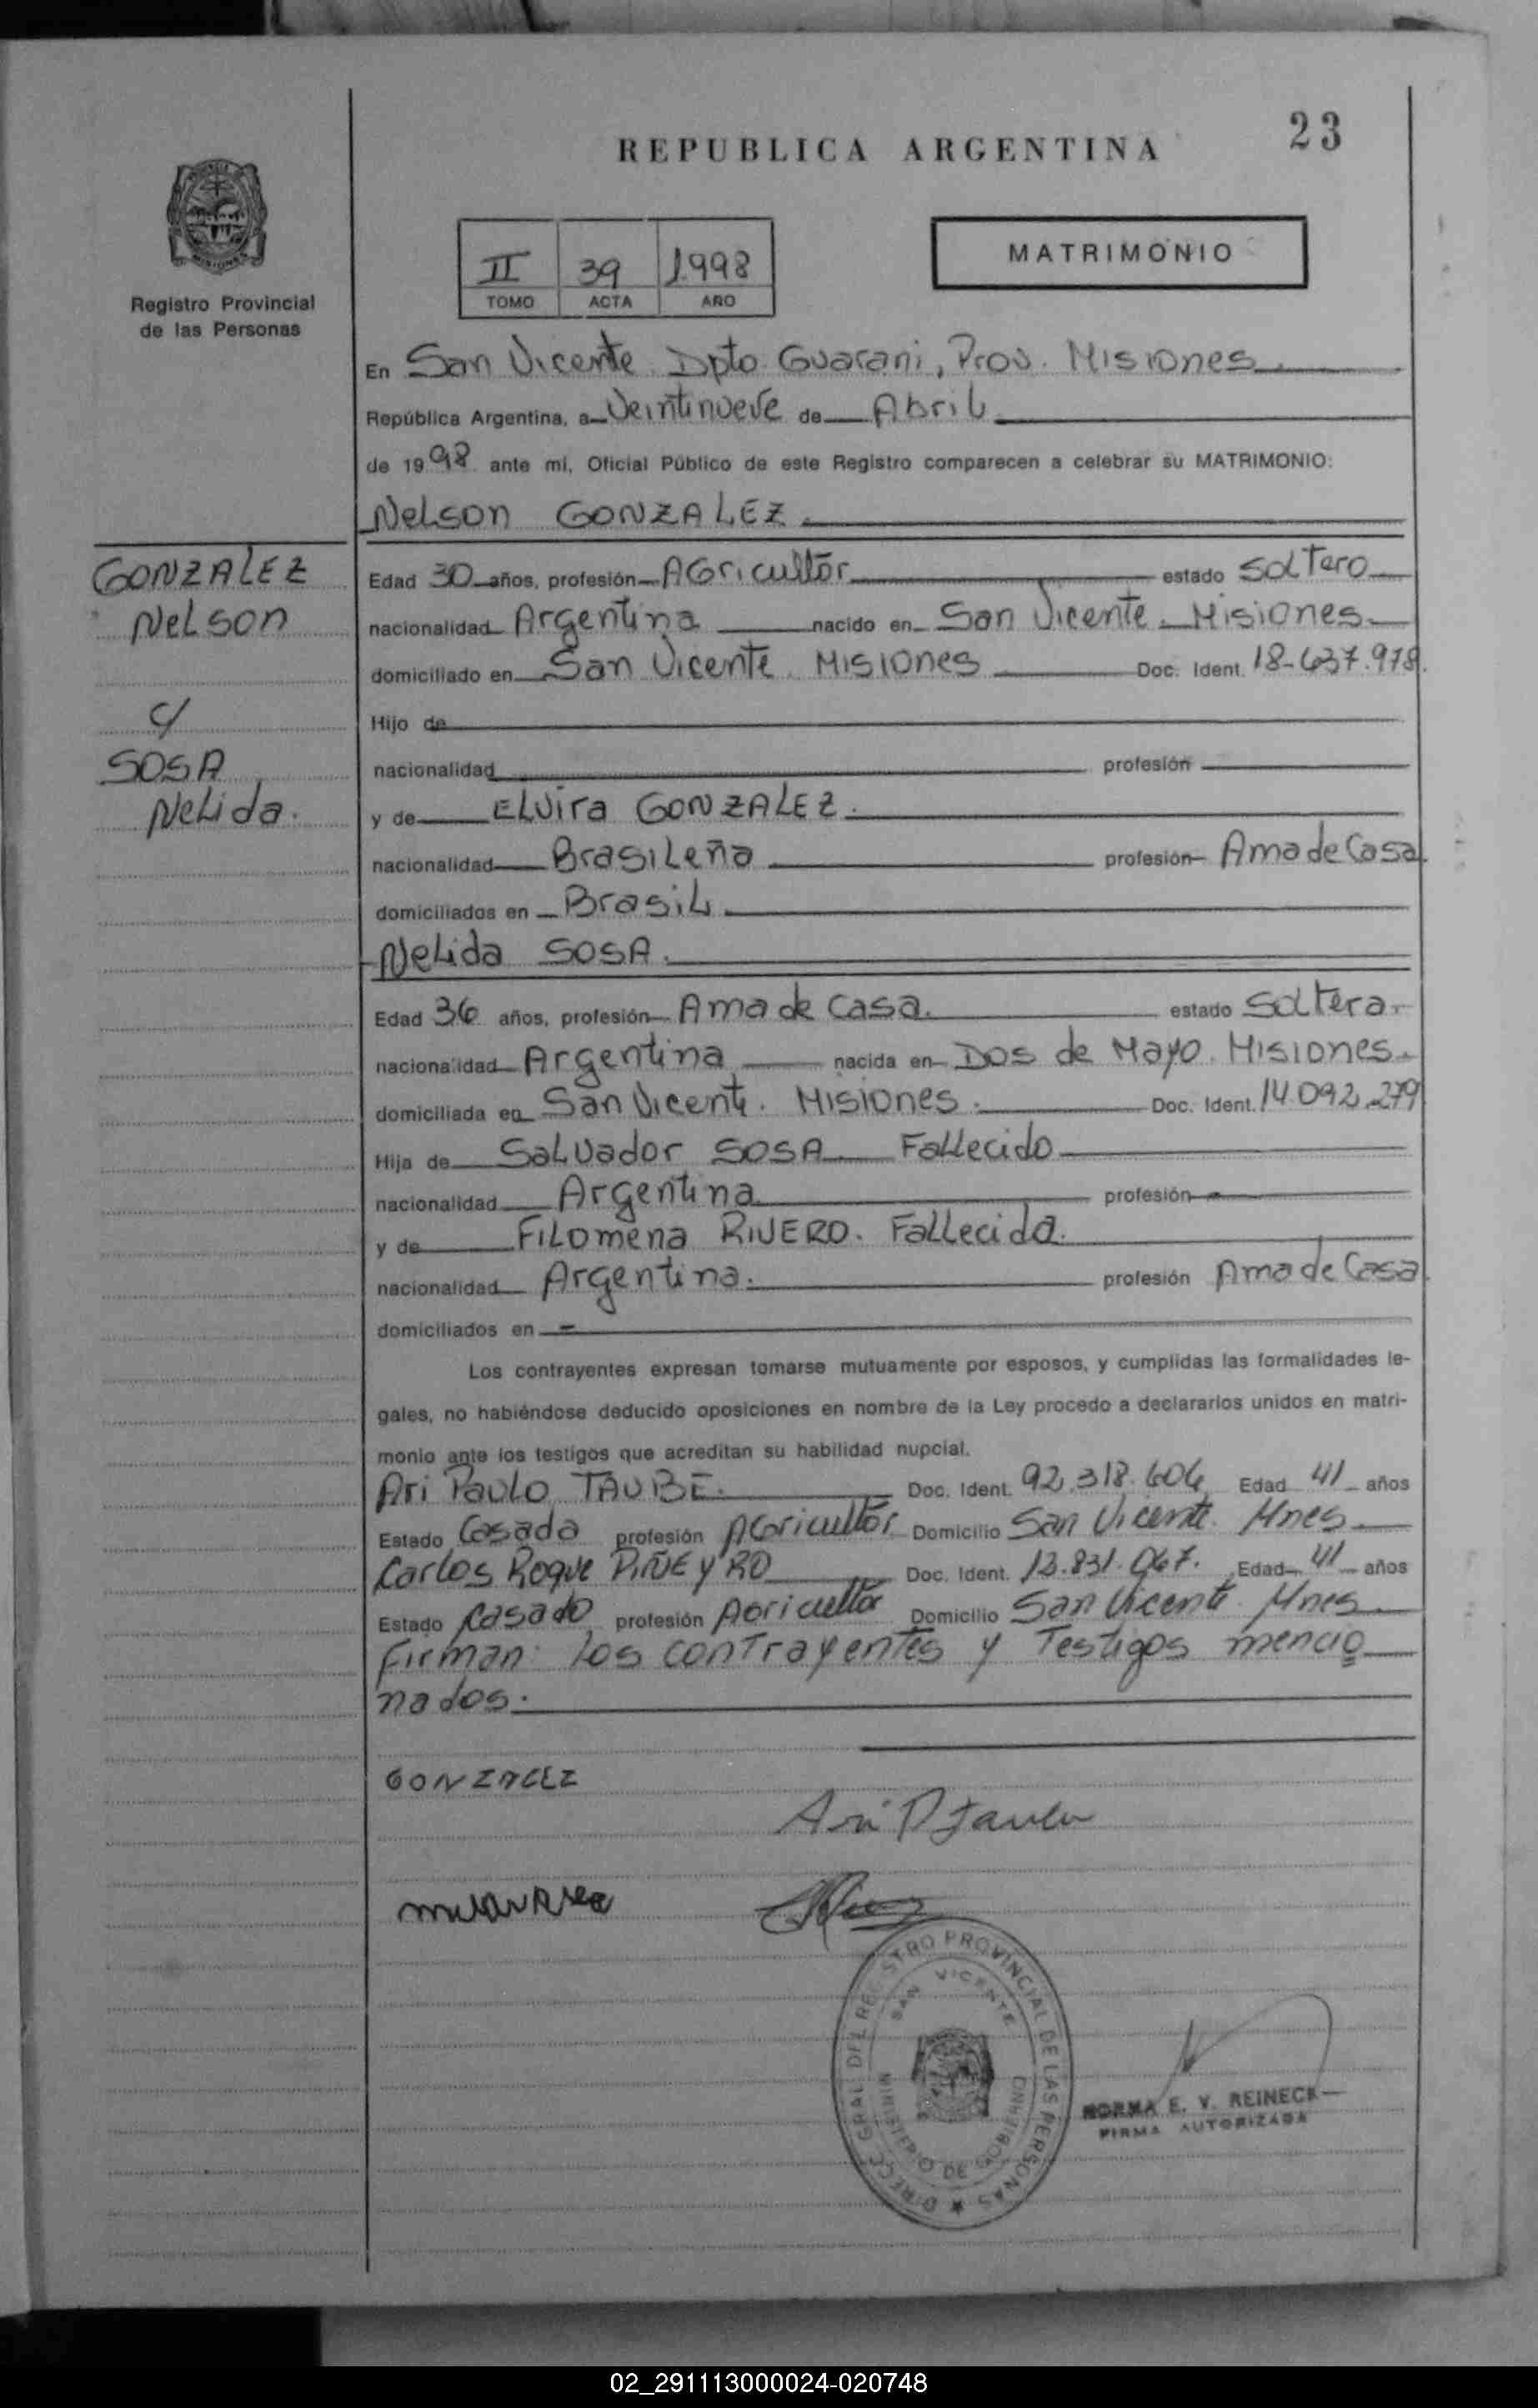 23
REPUBLICA ARGENTINA
Registro Provincial
de las Personas
II 39 1998
TOMO ACTA AÑO
MATRIMONIO
En San Vicente Dpto. Guarani, Prov. Misiones
República Argentina, a Veintinueve de Abril
de 1998 ante mí, Oficial Público de este Registro comparecen a celebrar su MATRIMONIO:
Nelson GONZALEZ.
GONZALEZ
Nelson
c/
SOSA
Nelida.
Edad 30 años, profesión Agricultor estado Soltero
nacionalidad Argentina nacido en San Vicente Misiones
domiciliado en San Vicente Misiones Doc. Ident. 18-637.978.
Hijo de
nacionalidad profesión
y de Elvira GONZALEZ.
nacionalidad Brasileña profesión Ama de Casa
domiciliados en Brasil
Nelida SOSA.
Edad 36 años, profesión Ama de Casa. estado Soltera.
nacionalidad Argentina nacida en Dos de Mayo. Misiones.
domiciliada en San Vicente. Misiones. Doc. Ident. 14.092.279
Hija de Salvador SOSA Fallecido
nacionalidad Argentina profesión -
y de Filomena RIVERO. Fallecida.
nacionalidad Argentina. profesión Ama de Casa
domiciliados en -
Los contrayentes expresan tomarse mutuamente por esposos, y cumplidas las formalidades le-
gales, no habiéndose deducido oposiciones en nombre de la Ley procedo a declararlos unidos en matri-
monio ante los testigos que acreditan su habilidad nupcial.
Ari Paulo TAUBE. Doc. Ident. 92.318.606 Edad 41 años
Estado Casado profesión Agricultor Domicilio San Vicente. Mnes
Carlos Roque PIÑEYRO Doc. Ident. 13.831.067. Edad 41 años
Estado Casado profesión Agricultor Domicilio San Vicente. Mnes
Firman: los contrayentes y Testigos mencio
nados.
GONZALEZ
DIRECC. GRAL. DEL REGISTRO PROVINCIAL DE LAS PERSONAS
SAN VICENTE
MINISTERIO DE GOBIERNO
NORMA E. V. REINECK
FIRMA AUTORIZADA
02_291113000024-020748